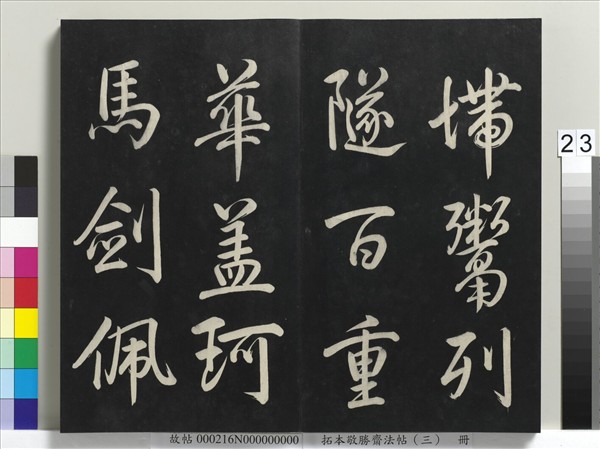 墆鬻列
隧百重
華盖珂
馬劍佩
23
故帖 000216N000000000 拓本敬勝齋法帖（三） 冊